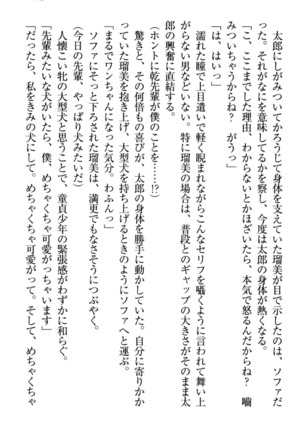 太郎にしがみついてかろうじて身体を支えていた瑠美が目で示したのは、ソファだ
った。それがなにを意味してるかを察し、今度は太郎の身体が熱くなる。
「こ、ここまでした理由、わからないとかほざいたら、本気で怒るんだからね？　噛
みついちゃうからね？　がうっ」
「は、はいっ」
濡れた瞳で上目遣いで軽く睨まれながらこんなセリフを囁くように言われて舞い上
がらない男などいない。特に瑠美の場合は、普段とのギャップの大きさがそのまま太
郎の興奮に直結する。
（ホントに乾先輩が僕のことを……⁉）
驚きと、その何倍もの喜びが、太郎の身体を勝手に動かしていた。自分に寄りかか
っていた瑠美を抱き上げ、大型犬を持ち上げるときのようにソファへと運ぶ。
「まるでワンちゃんになった気分。わふんっ」
ソファにそっと下ろされた瑠美は、満更でもなさそうにつぶやく。
（今日の先輩、やっぱり犬みたいだ）
人懐こい牝の大型犬と思うことで、童貞少年の緊張感がわずかに和らぐ。
「先輩みたいな犬がいたら、僕、めちゃくちゃ可愛がっちゃいます」
「だったら、私をきみの犬にして。めちゃくちゃ可愛がって。そして、めちゃくちゃ